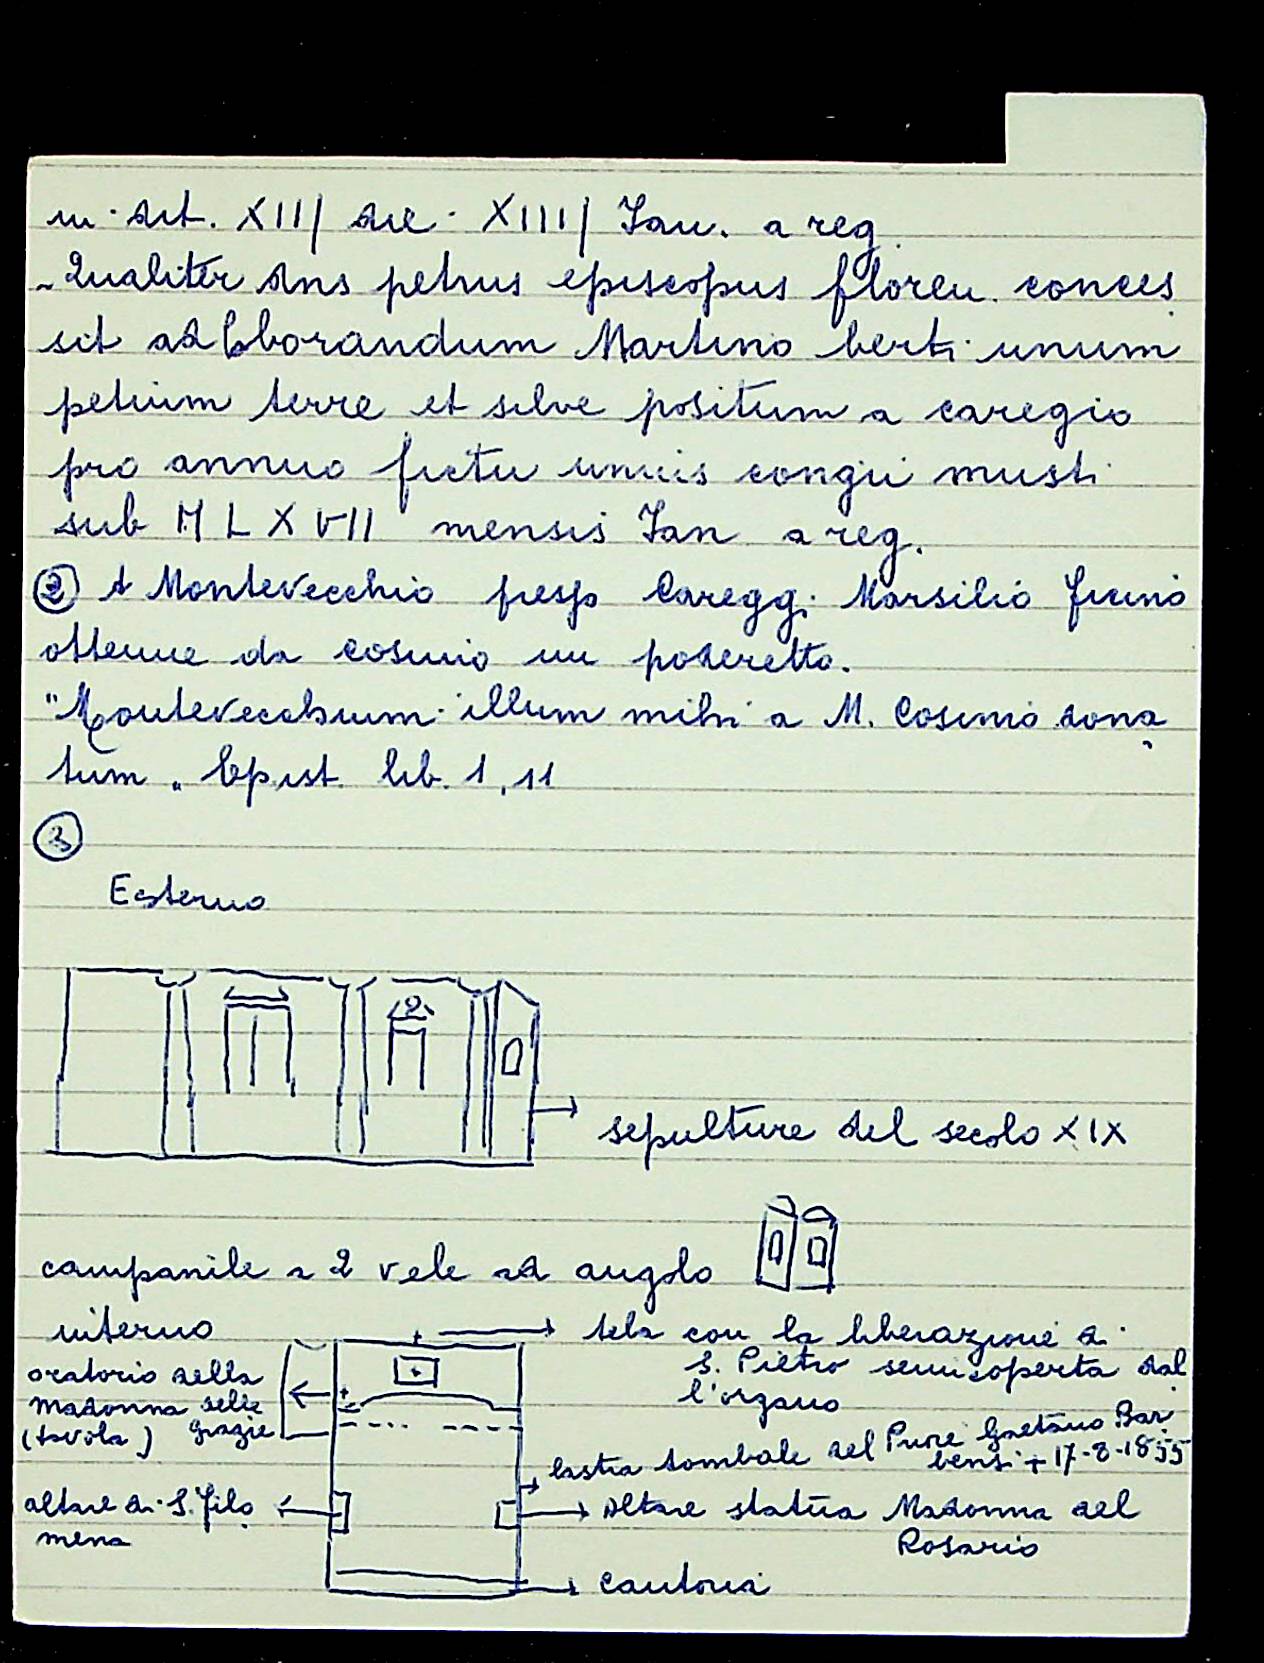 in dit. XII / die XIII / Jan. a reg.
- Qualiter dns petrus episcopus floren. conces
sit ad laborandum Martino berti unum
petium terre et silve positum a caregio
pro annuo fictu unius congii musti
sub MLXVII mensis Jan a reg.
② A Montevecchio presso Careggi Marsilio Ficino
ottenne da Cosimo un poderetto.
"Montevecchium illum mihi a M. Cosimo dona
tum" Epist. lib. 1, 11
③
Esterno
2
sepolture del secolo XIX
campanile a 2 vele ad angolo
interno
tela con la liberazione di
S. Pietro semicoperta dal
l'organo
oratorio della
madonna delle
(tavola) grazie
lastra tombale del Pure Gaetano Bar
bensi + 17-8-1855
altare di S. Filo
mena
altare statua Madonna del
Rosario
cantoria